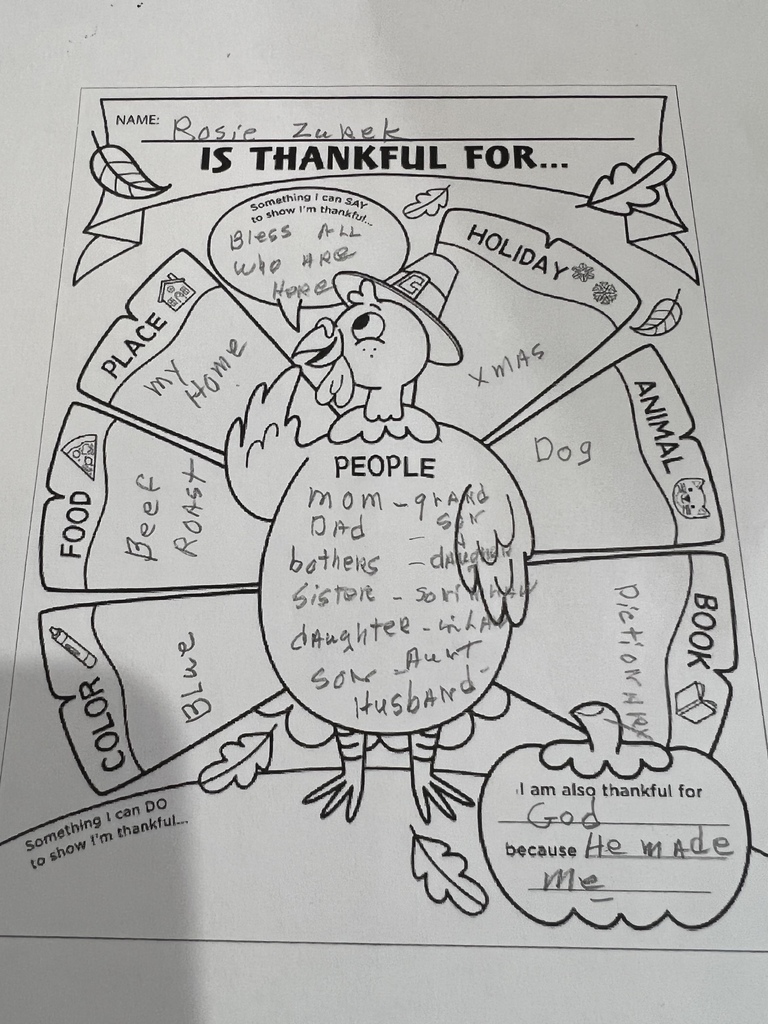 NAME: Rosie Zukek
IS THANKFUL FOR...
Something I can SAY
to show I'm thankful...
Bless ALL
who ARE
Here
HOLIDAY
XMAS
PLACE
my
Home
ANIMAL
Dog
FOOD
Beef
ROAST
PEOPLE
mom - grand
DAD - son
bothers - daughter
Sister - son in LAW
dAughter - in LAW
son - Aunt
HusbAnd -
BOOK
Dictionary
COLOR
Blue
Something I can DO
to show I'm thankful...
I am also thankful for
God
because He mAde
me